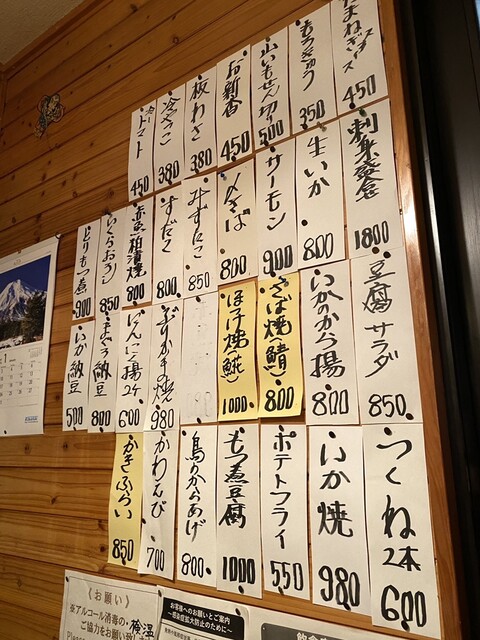 たまねぎスライス 450
もろきゅう 350
山いもせん切り 500
お新香 450
板わさ 380
冷やっこ 380
冷トマト 450
刺身盛合 1800
生いか 800
サーモン 900
〆さば 800
みずだこ 850
すだこ 800
赤魚粕漬焼 800
いくらおろし 850
とりもつ煮 900
豆腐サラダ 850.
いかのから揚 800
さば焼(鯖) 800
ほっけ焼(𩸽) 1000.
980
にんにく揚2ケ 600
まぐろ納豆 800
いか納豆 500
つくね2本 600
いか焼 980
ポテトフライ 550
もつ煮豆腐 1000
鳥のからあげ 800.
かわえび 700
かきふらい 850
《お願い》
※アルコール消毒の
ご協力をお願い致
お客様へのお願いとご案内
～感染症拡大防止のために～